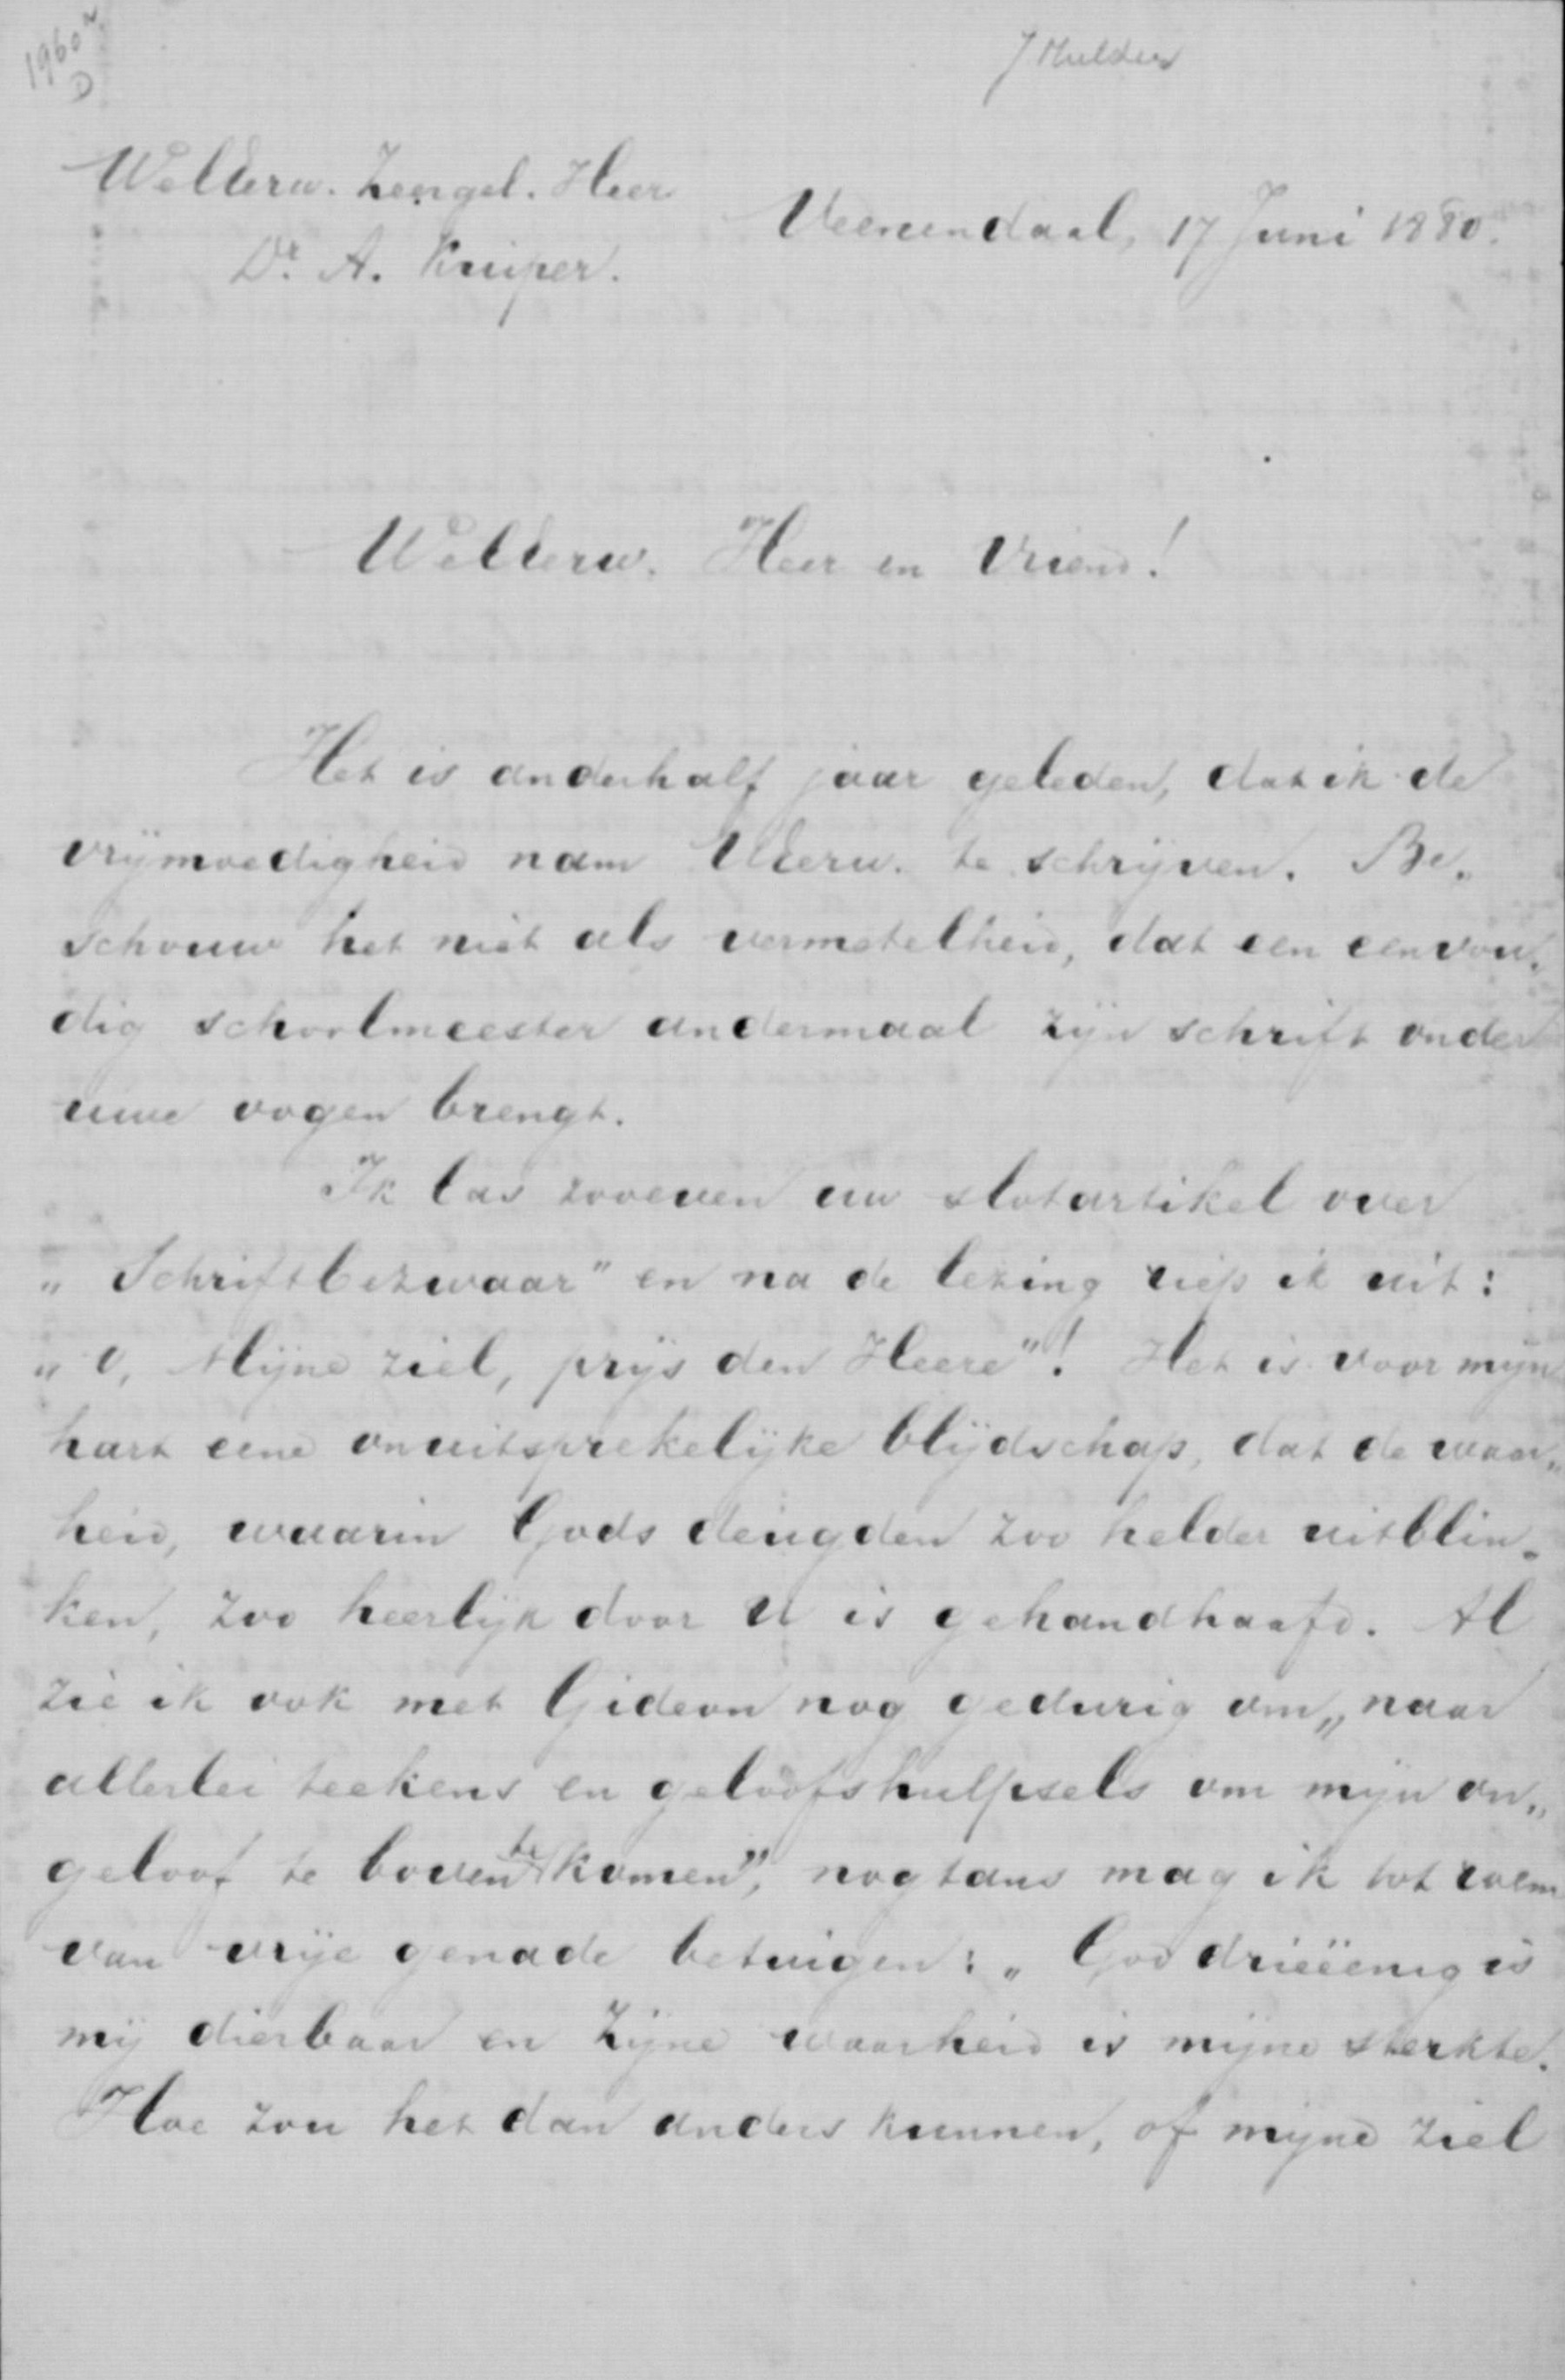 1960
D
J Mulder
WelEerw. Zeergel. Heer
Veenendaal, 17 Juni 1880.
Dr. A. Kuiper.
WelEerw. Heer en Vriend!
Het is anderhalf jaar geleden, dat ik de
vrijmoedigheid nam UEerw. te schrijven. Be„
schouw het niet als vermetelheid, dat een eenvou„
dig schoolmeester andermaal zijn schrift onder
uwe oogen brengt.
Ik las zooeven uw slotartikel over
„Schriftbezwaar" en na de lezing riep ik uit:
„O, Mijne ziel, prijs den Heere"! Het is voor mijn
hart eene onuitsprekelijke blijdschap, dat de waar„
heid, waarin Gods deugden zoo helder uitblin„
ken, zoo heerlijk door U is gehandhaafd. Al
zie ik ook met Gideon nog gedurig om „naar
allerlei teekens en geloofshulpsels om mijn on„
geloof te boven te komen", nogtans mag ik tot roem
van vrije genade betuigen: „God drieëenig is
mij dierbaar en Zijne waarheid is mijne sterkte.
Hoe zou het dan anders kunnen, of mijne ziel